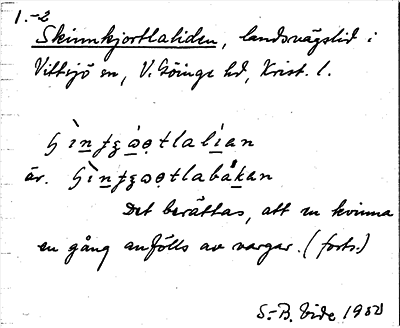 1.-2
Skinnkjortlaliden, landsvägslid i
Vittsjö sn, V. Göinge hd, Krist. l.
är.
Det berättas, att en kvinna
en gång anfölls av vargar. (forts.)
S.-B. Vide